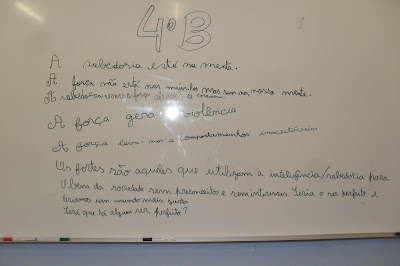 4º B
A sabedoria está na mente.
A força não está nos músculos mas sim na nossa mente.
A sabedoria vence a força através da
A força gera violência
A força leva-nos a comportamentos inaceitáveis.
Os fortes são aqueles que utilizam a inteligência/sabedoria para
o bem da sociedade sem preconceito e sem interesses. Seria o ser perfeito e
teríamos um mundo mais justo
Será que há algum ser perfeito?